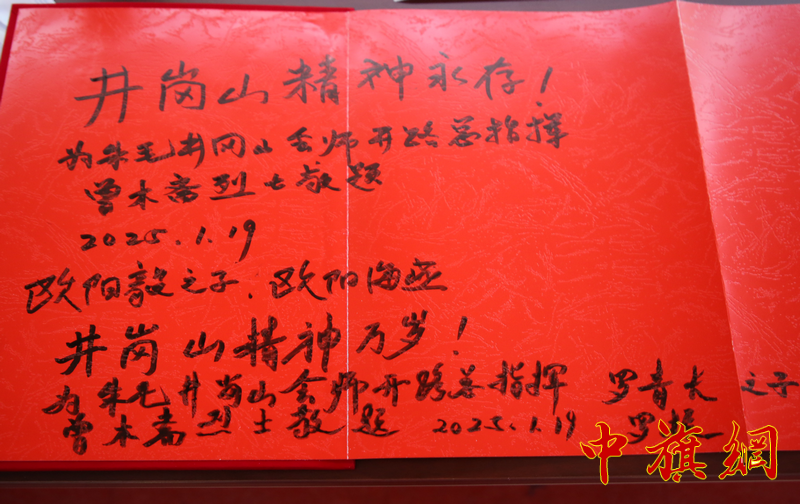 井岗山精神永存！
为朱毛井冈山会师开路总指挥
曾木斋烈士敬题
2025.1.19
欧阳毅之子：欧阳海燕
井岗山精神万岁！
为朱毛井岗山会师开路总指挥 罗青长之子
曾木斋烈士敬题 2025.1.19 罗挺
中旗網